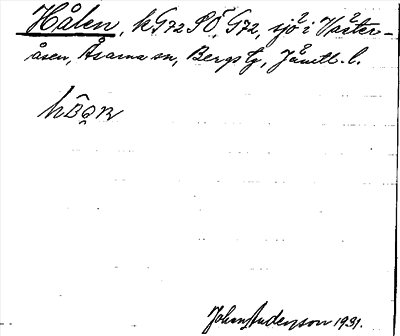 Hålen, k G72 SÖ, G72, sjö i Väster-
åsen, Åsarna sn, Bergs tg, Jämtl. l.
John Anderson 1931.